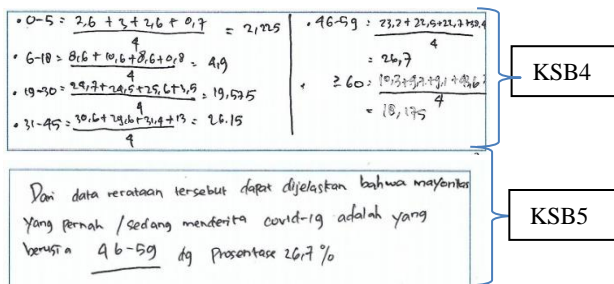 • 0-5 = 2,6 + 3 + 2,6 + 0,7 = 2,225
4
• 6-18 = 8,6 + 10,6 + 8,6 + 0,8 = 4,9
4
• 19-30 = 24,7+24,5+25,6+3,5 = 19,575
4
• 31-45 = 30,6+29,6+31,4+13 = 26.15
4
• 46-59 = 23,2 + 22,5+22,7+38,4
4
= 26,7
• ≥ 60 = 10,3+
4
= 18,175
KSB4
Dari data rerataan tersebut dapat dijelaskan bahwa mayoritas
yang pernah / sedang menderita covid-19 adalah yang
berusia 46-59 dg prosentase 26,7 %
KSB5